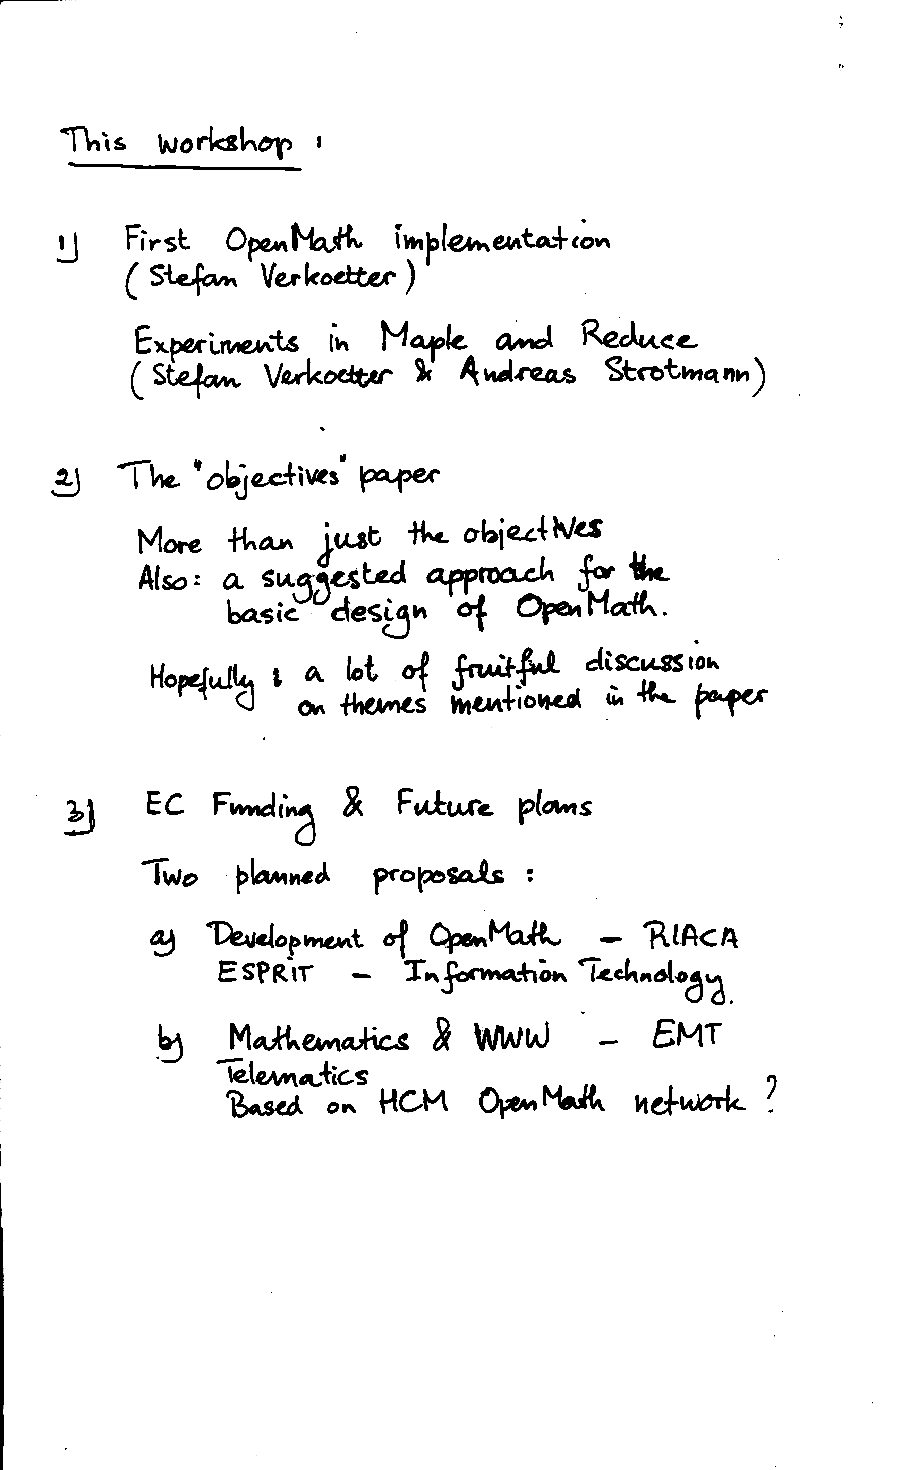 This workshop :
1) First OpenMath implementation
( Stefan Verkoetter )
Experiments in Maple and Reduce
( Stefan Verkoetter & Andreas Strotmann )
2) The "objectives" paper
More than just the objectives
Also : a suggested approach for the
basic design of OpenMath.
Hopefully : a lot of fruitful discussion
on themes mentioned in the paper
3) EC Funding & Future plans
Two planned proposals :
a) Development of OpenMath – RIACA
ESPRIT – Information Technology.
b) Mathematics & WWW – EMT
Telematics
Based on HCM OpenMath network ?